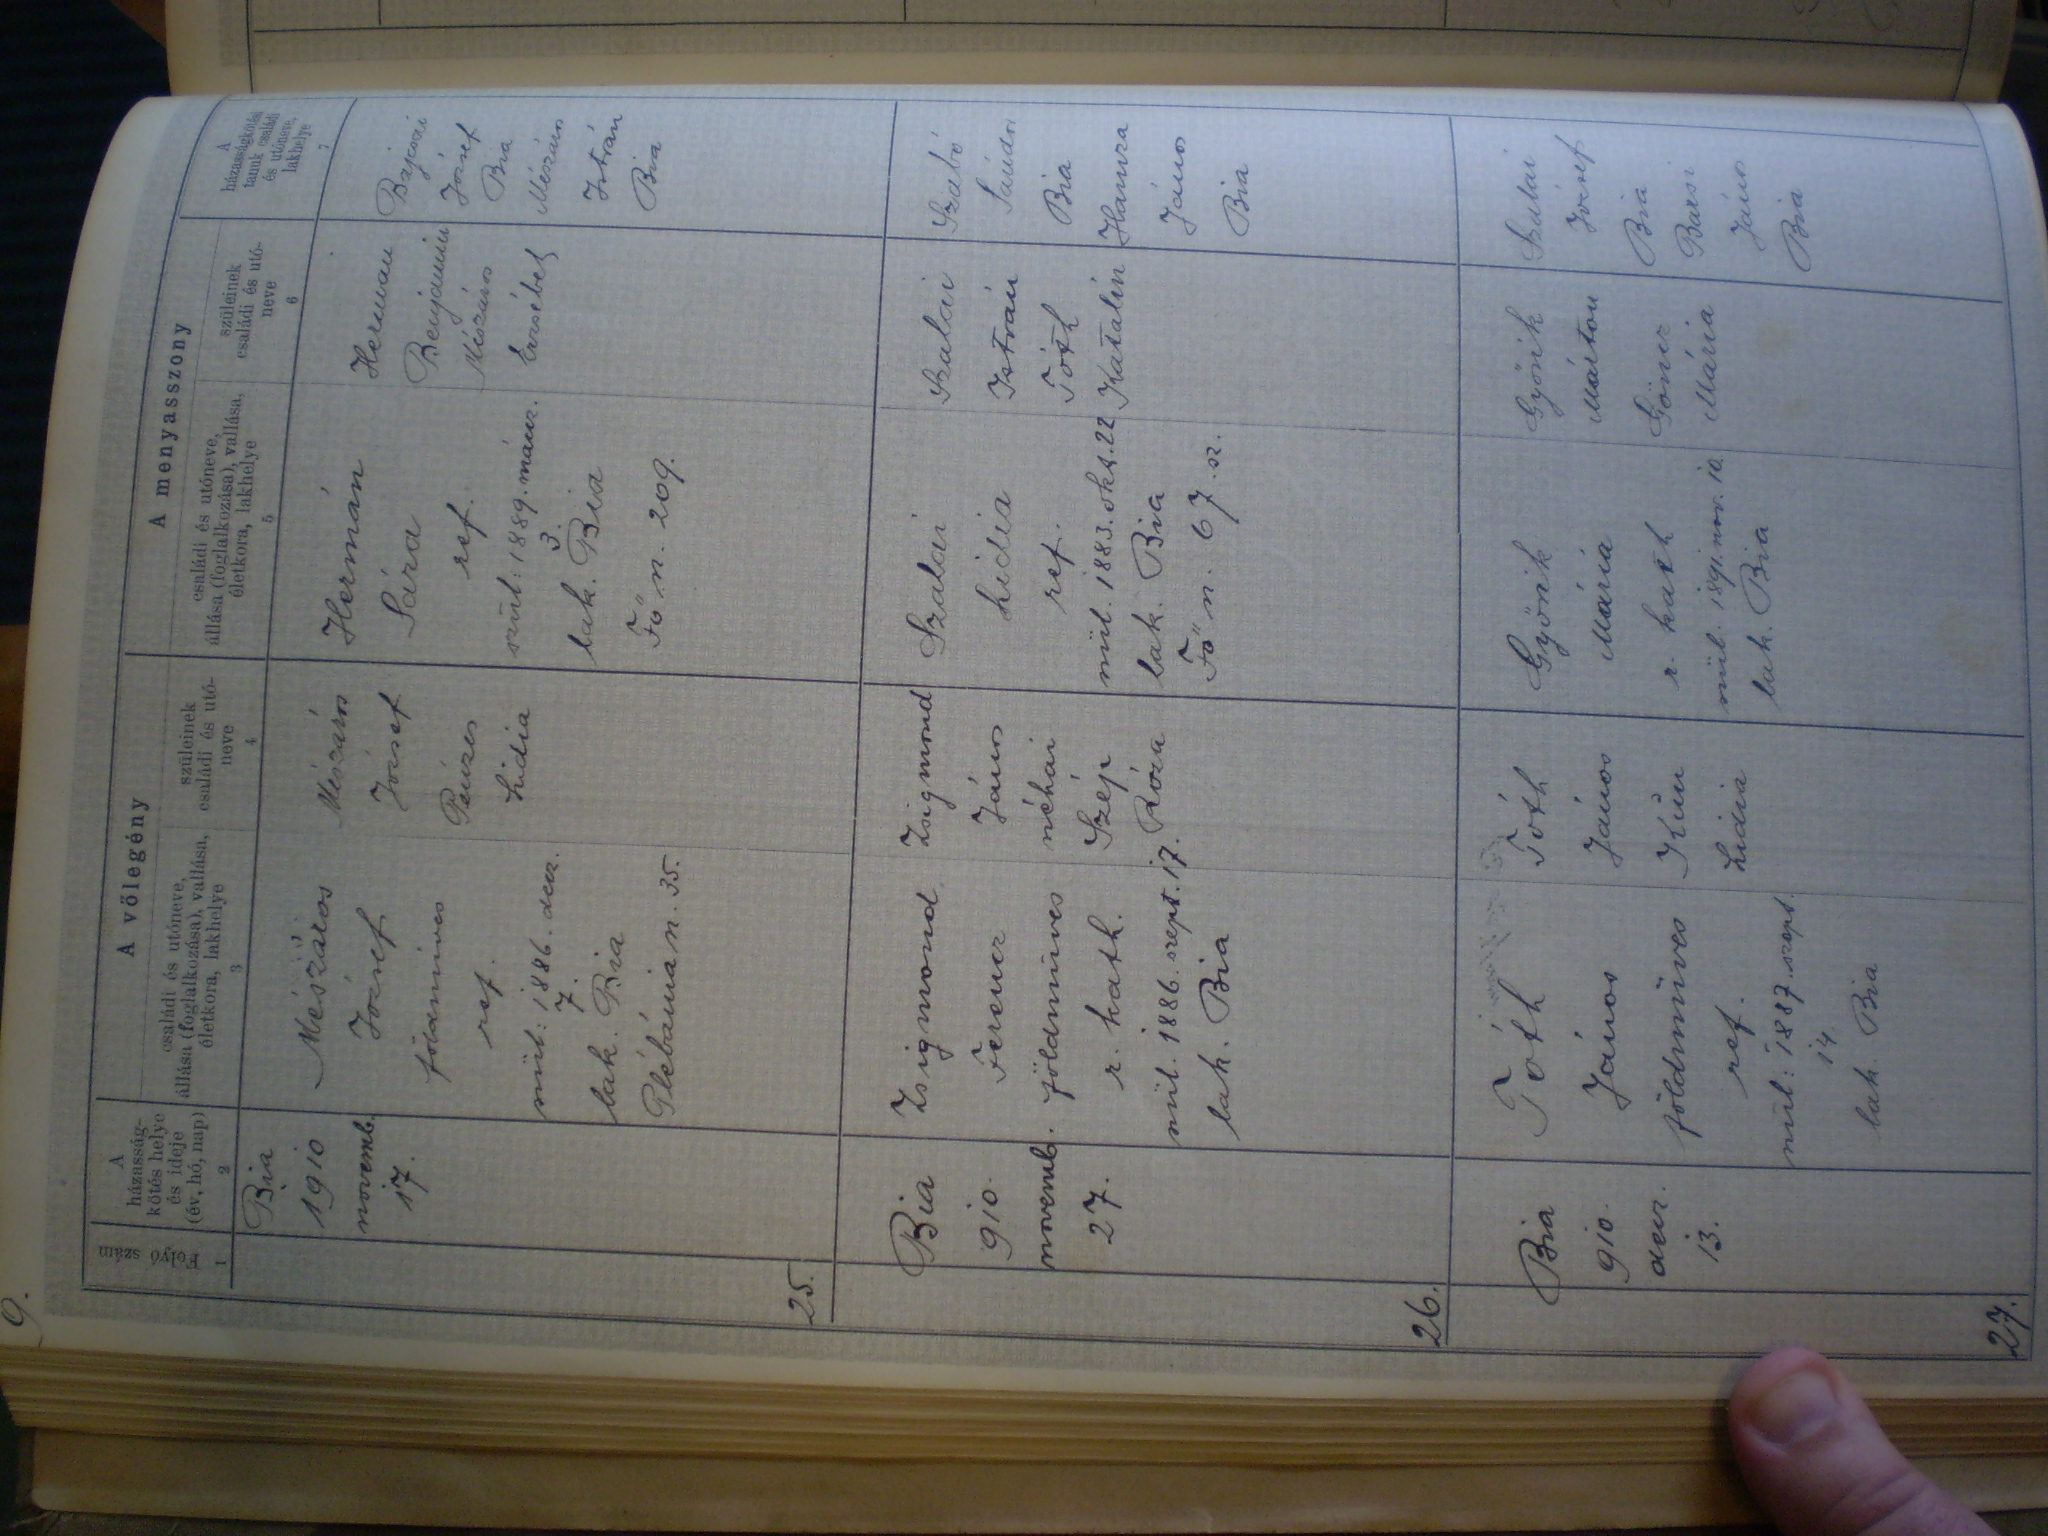 9.
Folyó szám
1
A
házasság-
kötés helye
és ideje
(év, hó, nap)
2
A vőlegény
családi és utóneve,
állása (foglalkozása), vallása,
életkora, lakhelye
3
szüleinek
családi és utó-
neve
4
A menyasszony
családi és utóneve,
állása (foglalkozása), vallása,
életkora, lakhelye
5
szüleinek
családi és utó-
neve
6
A
házasságkötési
tanuk családi
és utóneve,
lakhelye
7
25.
Bia
1910
novemb.
17.
Mészáros
József
földmíves
ref.
szül: 1886. decz.
7.
lak. Bia
Plébánia n. 35.
Mészáros
József
Pénzes
Lidia
Hermán
Sára
ref.
szül: 1889. márcz.
3.
lak. Bia
Fő n. 209.
Herman
Benjamin
Mészáros
Erzsébet
József
Bia
Mészáros
István
Bia
26.
Bia
910.
novemb.
27.
Zsigmond
Ferencz
földmíves
r. kath.
szül. 1886. szept. 17.
lak. Bia
Zsigmond
János
néhai
Szép
Róza
Szalai
Lidia
ref.
szül. 1883. okt. 22
lak. Bia
Fő n. 67. sz.
Szalai
István
Tóth
Katalin
Szabó
Sándor
Bia
Hamza
János
Bia
27.
Bia
910.
decz.
13.
Tóth
János
földmíves
ref.
szül: 1887. szept.
14.
lak. Bia
Tóth
János
Kún
Lidia
Győnik
Mária
r. kath
szül. 1891. nov. 10.
lak. Bia
Győnik
Márton
Göncz
Mária
Szalai
József
Bia
Barsi
János
Bia